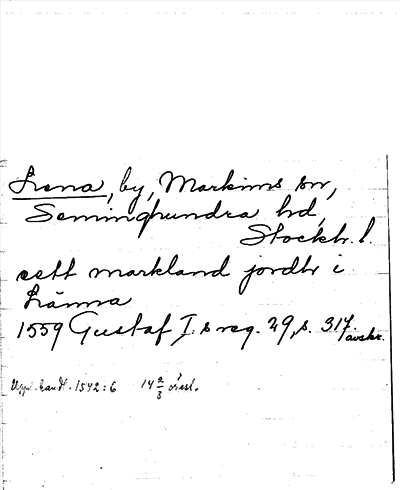 Lrena, by, Markims sn,
Seminghundra hd,
Stockh. l.
ett markland jordh i
Länna
1559 Gustaf I:s reg. 29, s. 317. avskr.
Uppl. handl. 1542:6 14 2/3 öresl.